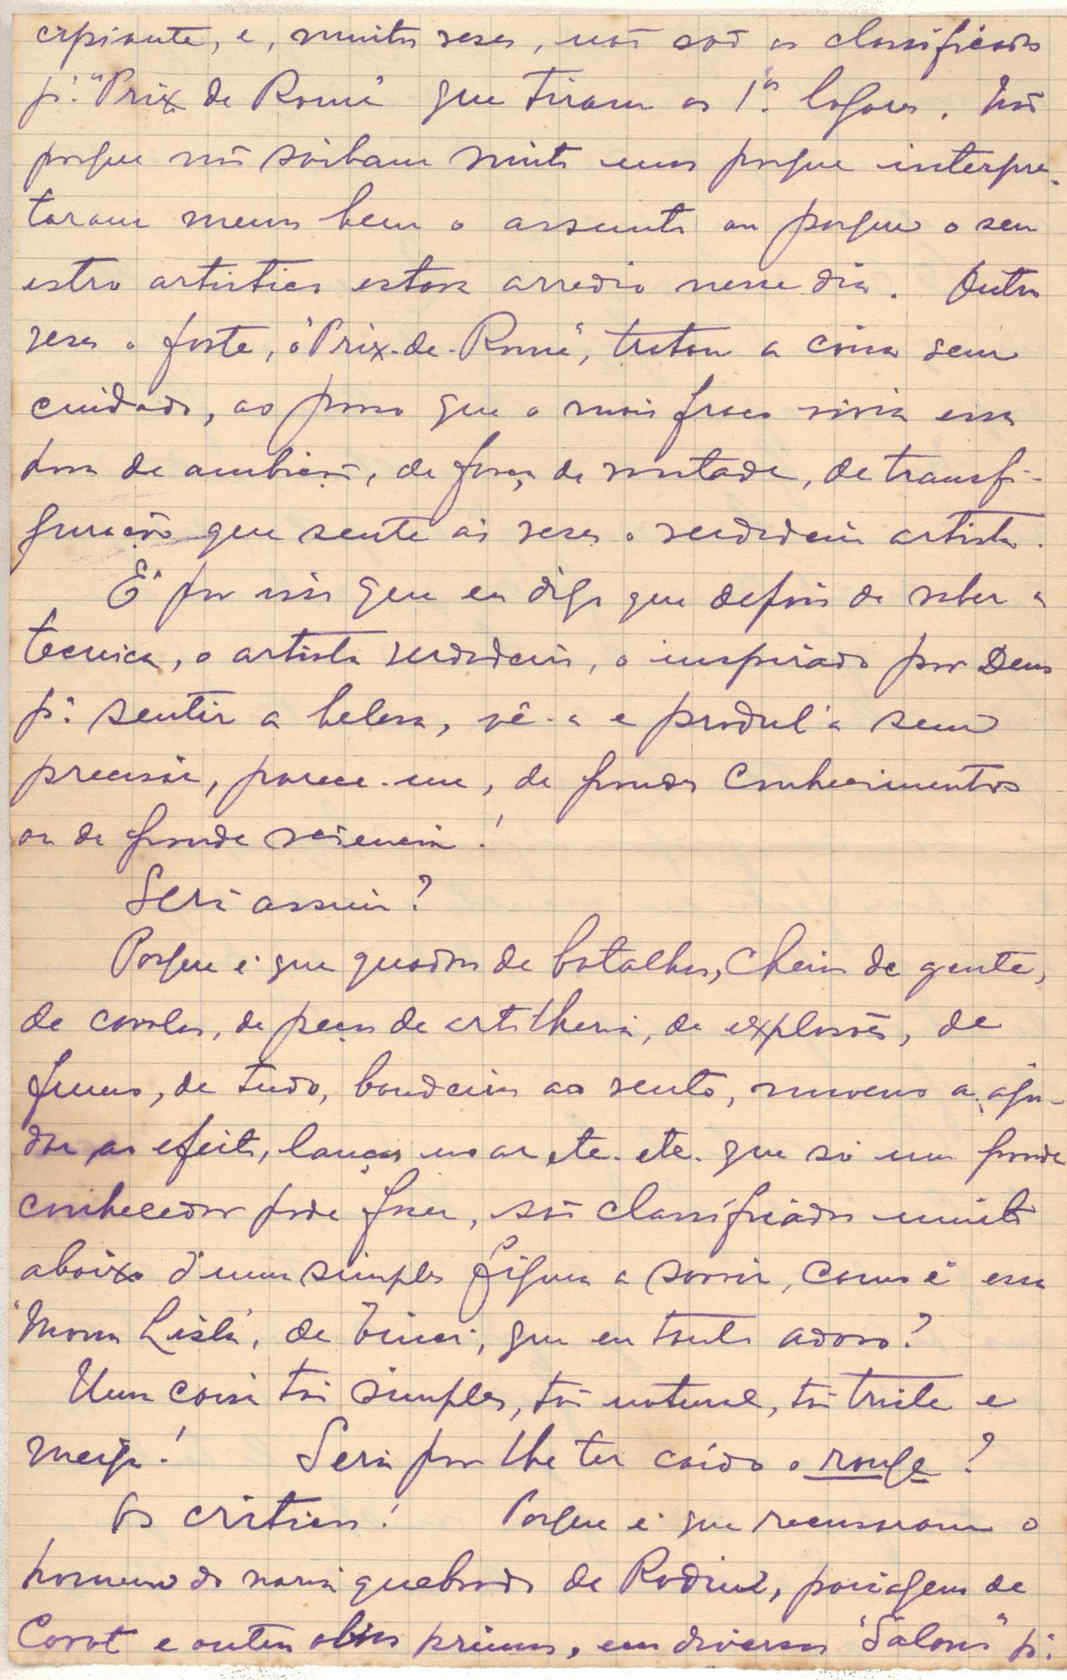 cipiante, e, muitas veses, não são os classificados
pª. "Prix de Rome" que tiram os 1ºs. logares. Não
porque não saibam muito mas porque interpre-
taram menos bem o assunto ou porque o seu
estro artistico estava arredio nesse dia. Outras
veses o forte, o "Prix-de-Rome", tratou a coisa sem
cuidado, ao passo que o mais fraco vivia essa
hora de ambição, de força de vontade, de transfi-
guração que sente ás veses o verdadeiro artista.
É por isso que eu digo que depois de saber a
tecnica, o artista verdadeiro, o inspirado por Deus
pª. sentir a belesa, vê-a e produl-a sem
precisar, parece-me, de grandes conhecimentos
ou de grande sciencia!
Será assim?
Porque é que quadros de batalhas, cheios de gente,
de cavalos, de peças de artilheria, de explosões, de
fumo, de tudo, bandeiras ao vento, nuvens a aju-
dar os efeitos, lanças no ar, etc. etc. que só um grande
conhecedor pode faser, são classificados muito
abaixo d'uma simples figura a sorrir, como é essa
"Mona Lisa", de Vinci, que eu tanto adoro?
Uma coisa tão simples, tão natural, tão triste e
meiga! Será por lhe ter caído o rouge?
Os criticos! Porque é que recusaram o
homem do nariz quebrado de Rodin, paisagens de
Corot e outras obras primas, em diversos "Salons" pª.